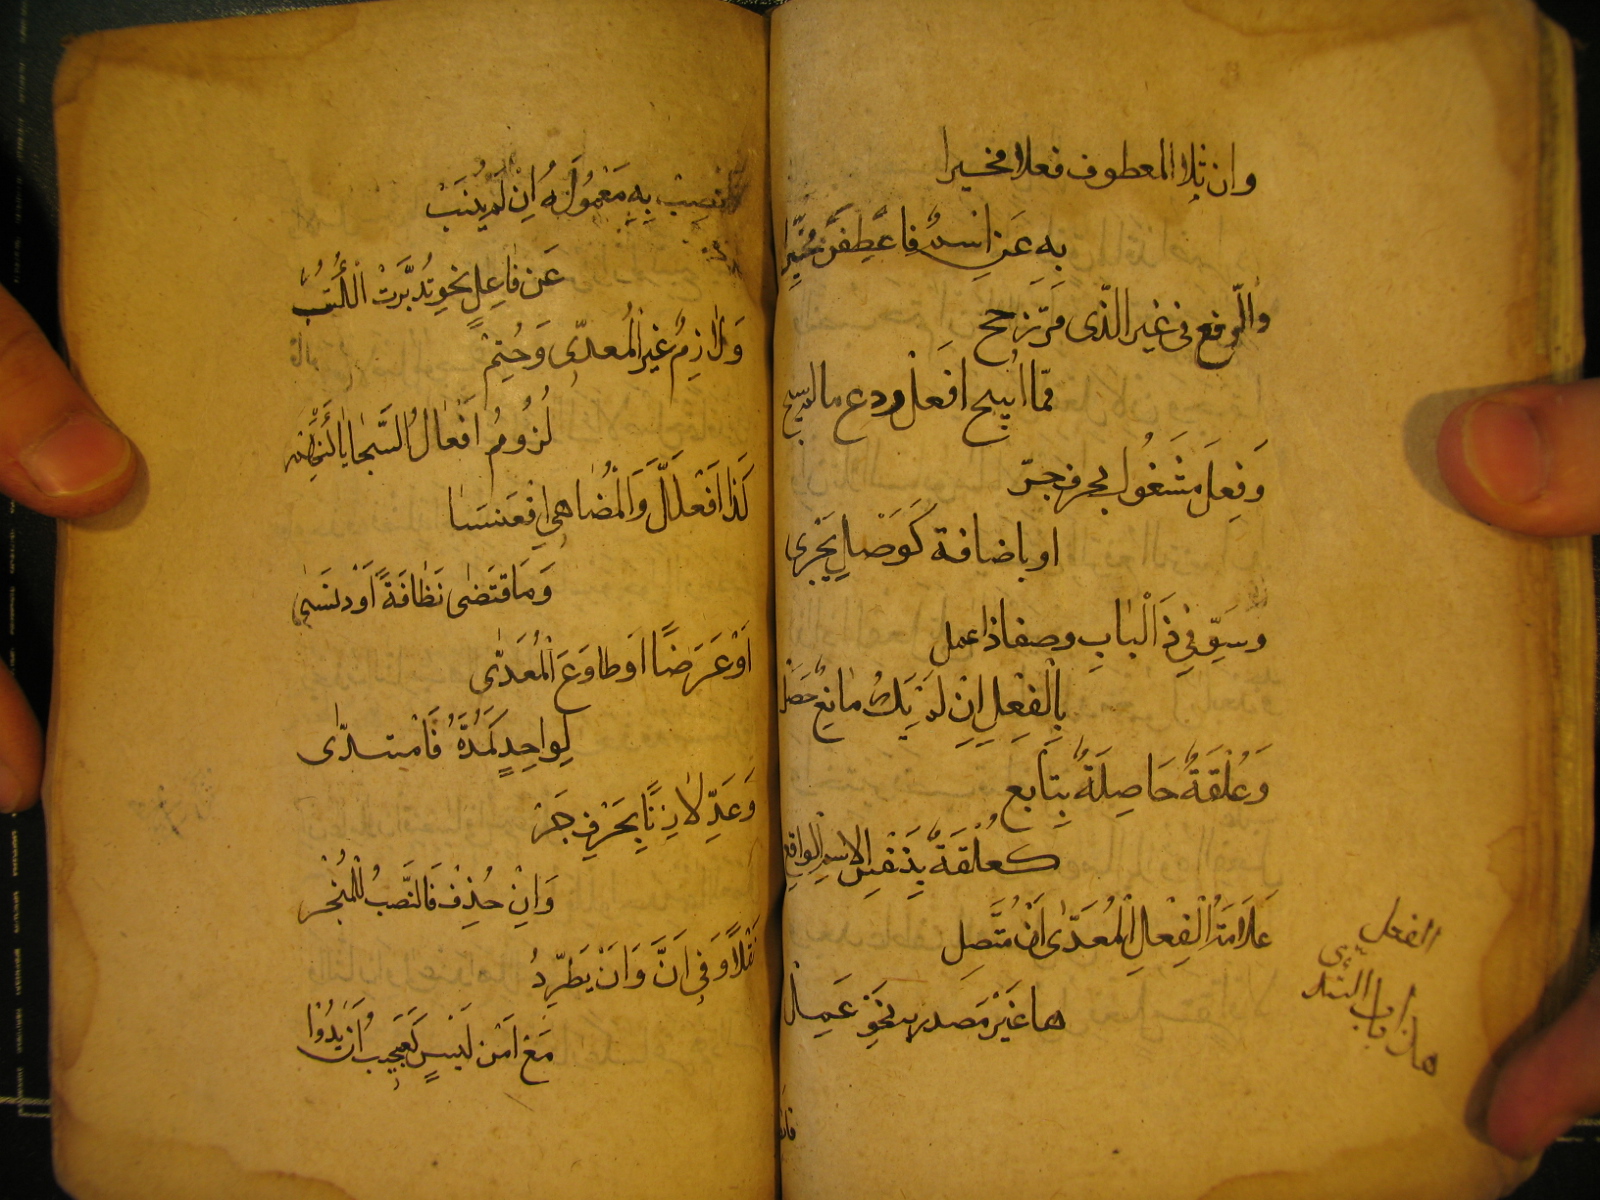 وان تلا المعطوف فعلا مخبرا
به عَن اسمٍ فاعطِفَن مُخَيَّرا
والرفع في غير الذي مرّ رَجح
فما ابيح افعل ودع ما لم يبح
وَفِعلَ مشغول بحرف جرّ
او باضافة كَوَصْلٍ يَجْرِي
وسَوِّ في ذَا الْبَابِ وصفا ذا عمل
بِالفِعْلِ اِنْ لم يَكُ مانِعٌ حَصَل
وَعُلْقَةٌ حَاصِلَةٌ بِتَابع
كعُلْقَةٍ بِنَفْسِ الاسمِ الواقع
عَلَامَةُ الْفِعْلِ الْمُعَدّى اَنْ تَصِل
ها غَيْرِ مَصدر به نَحْو عَمِل
الفعل
هذا باب
فانصِبْ بِهِ مَعْمُولَهُ اِنْ لَمْ يَنُبْ
عَن فاعِلٍ نحو تَدَبَّرْتُ الْكُتُبْ
وَلَازِمٌ غَيْرُ الْمُعدّى وَحُتِمْ
لُزُومُ اَفْعالِ السَّجايا كَنَهِمْ
كَذَا افْعَلَلَّ وَالْمُضاهِي اقْعَنْسَسَا
وَمَا اقتَضى نَظَافَةً اَوْ دَنَسَى
اَوْ عَرَضًا او طاوَعَ الْمُعَدّى
لِواحِدٍ كَمَدَّهُ فَامْتدّى
وَعَدِّ لازِمًا بِحَرْفِ جَرْ
وَاِنْ حُذِفْ فَالنَّصْبُ لِلْمُنْجَرْ
نَقْلًا وَفي اَنَّ وَاَنْ يَطَّرِدُ
مَعْ اَمْنِ لَبْسٍ كَعَجِبتُ اَنْ يَدُوْا